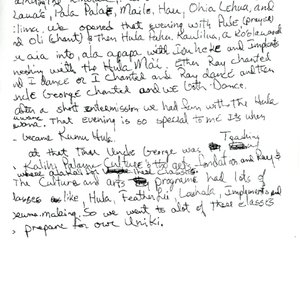 Palai, Pala Palae, Maile, Hau, Ohia Lehua, and
Ilima, we opened that evening with Pule, (prayer)
and Oli (chant) & then Hula Pahu, Kaulilua,
into, ala apapa with Ipu heke and Implements
with the Hula Mai, Either Ray chanted
and I dance or I chanted and Ray dance and then
Uncle George chanted and we both dance.
After a short intermission we had fun with the Hula
auana. That evening is so special to me its when
I became Kumu Hula.
at that time Uncle George was Teaching
Kalihi Palama Culture & the arts and Ray &
where
The Culture and arts programs had lots of
classes like, Hula, Feather lei, Lauhala, Implements and
making. So we went to alot of these classes
prepare for our Uniki.